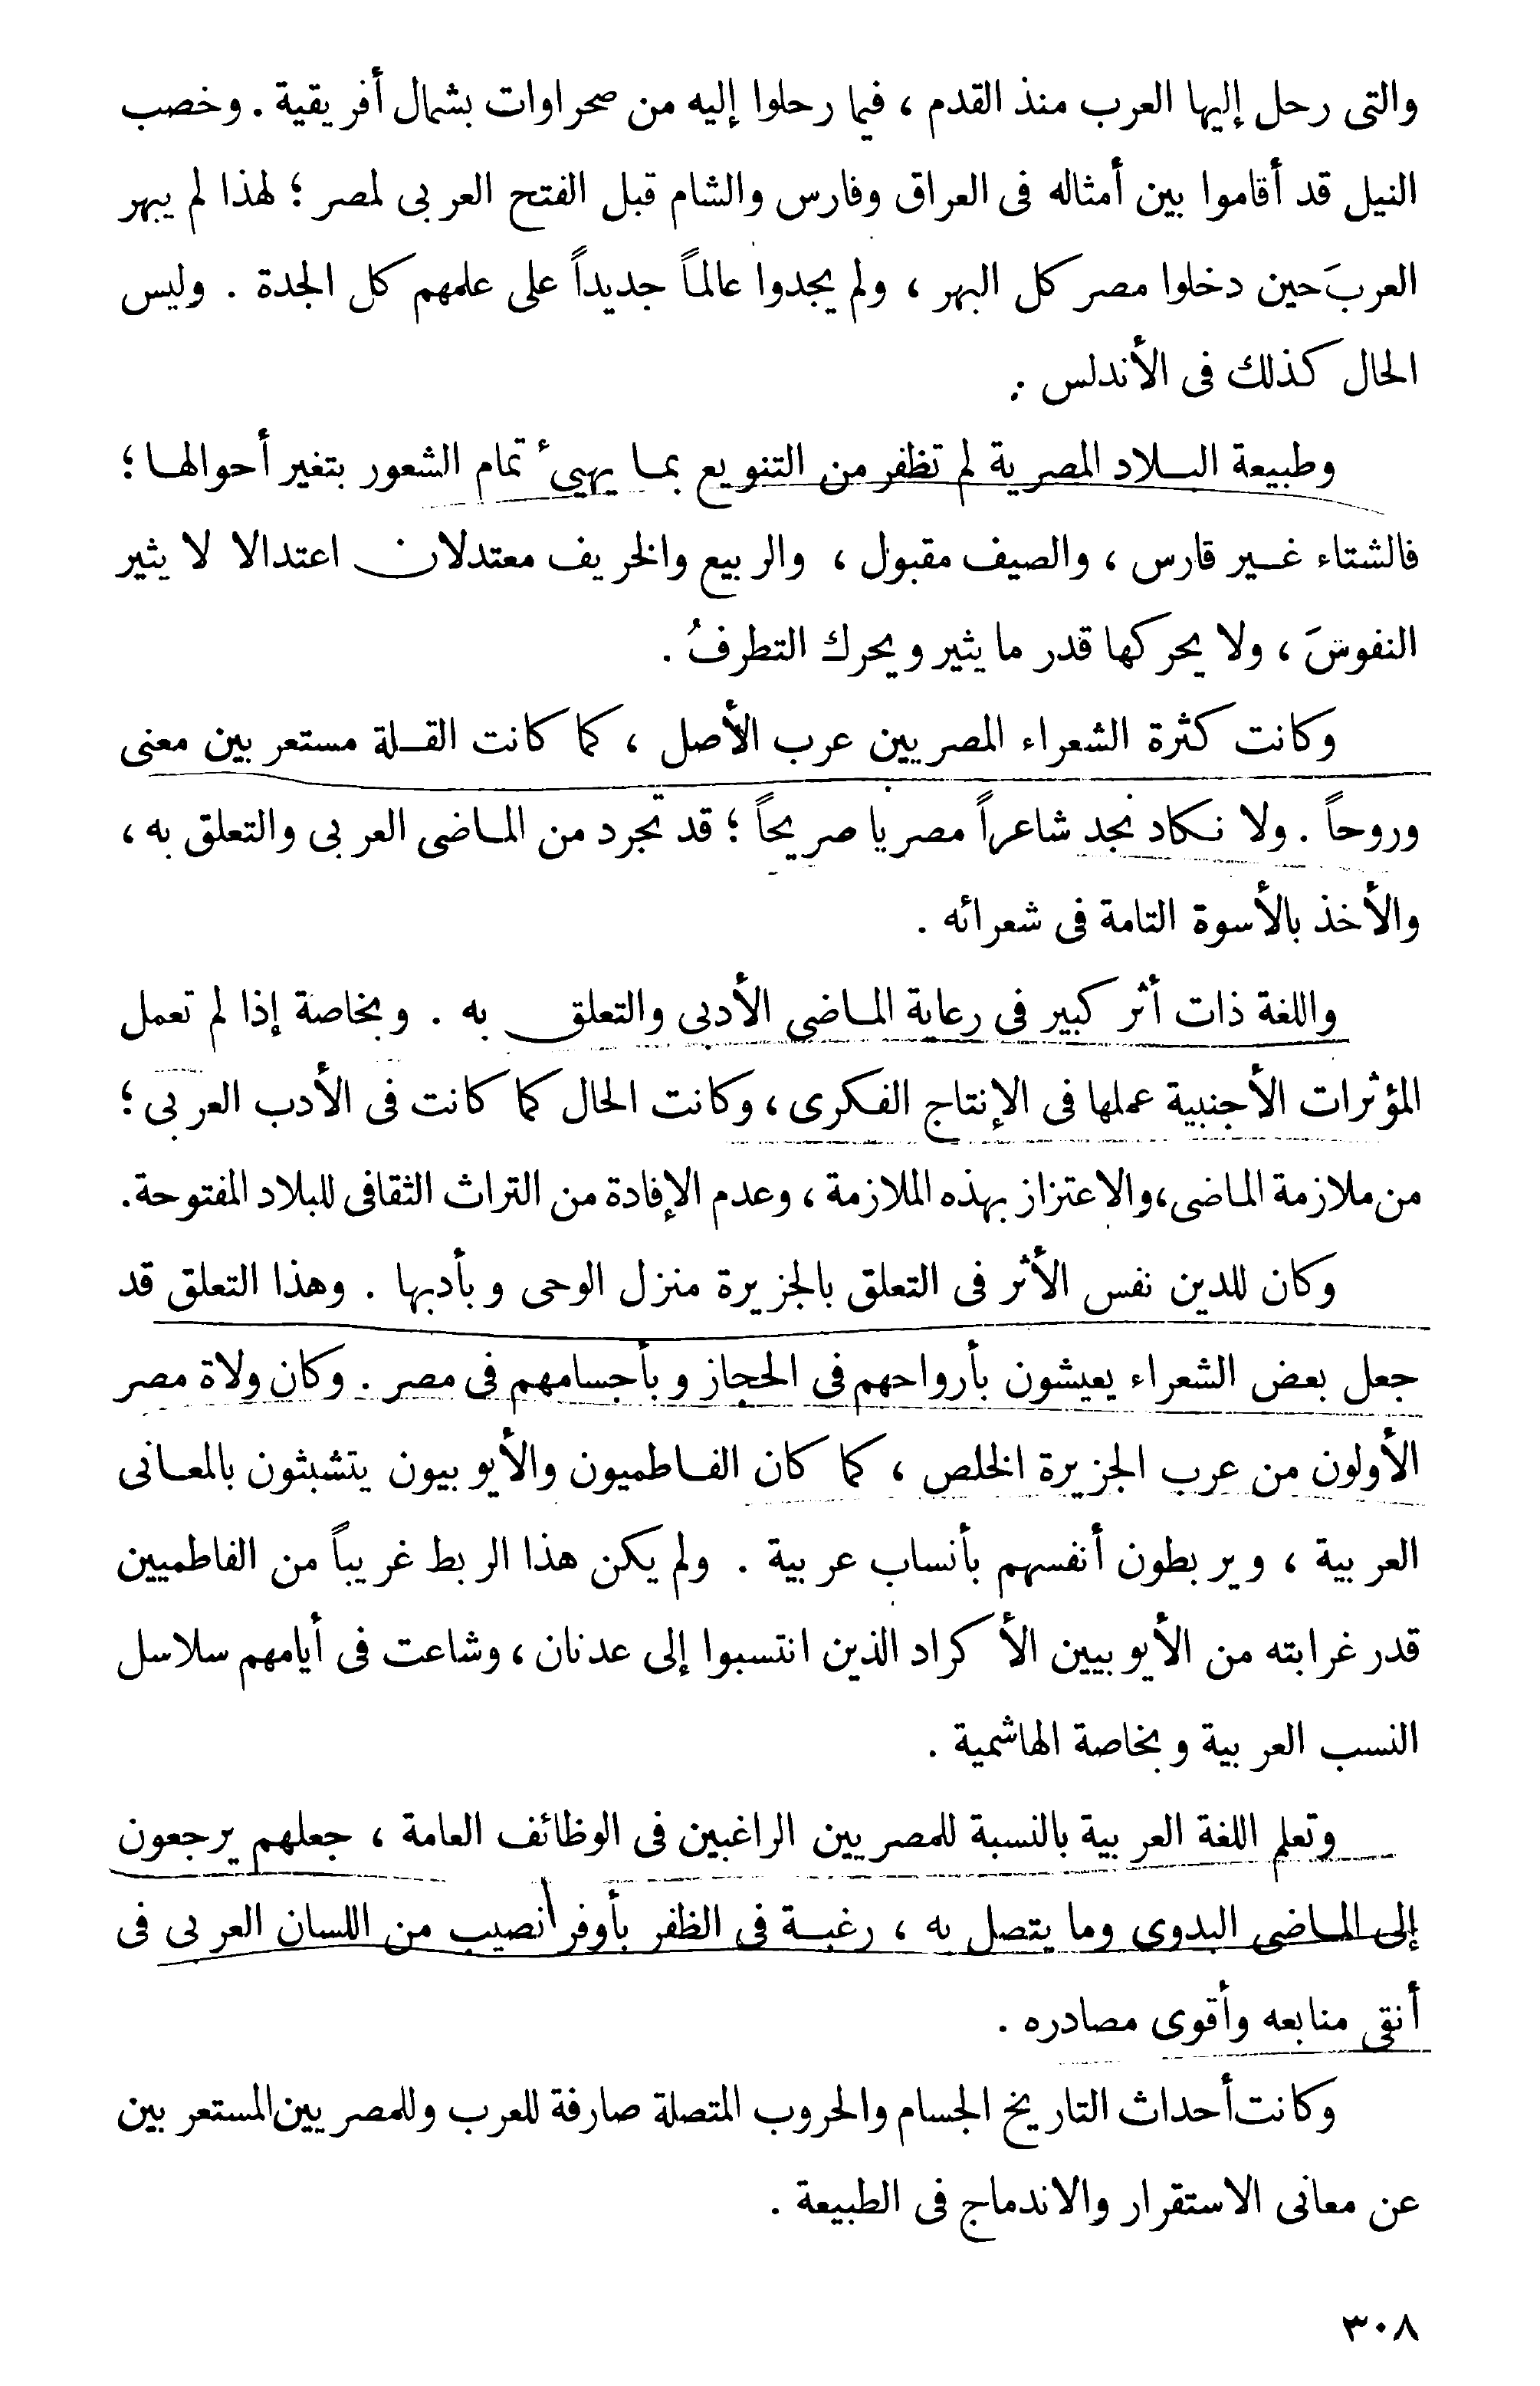 والتى رحل إليها العرب منذ القدم ، فيما رحلوا إليه من صحراوات بشمال أفريقية . وخصب
النيل قد أقاموا بين أمثاله فى العراق وفارس والشام قبل الفتح العربى لمصر ؛ لهذا لم يبهر
العربَ حين دخلوا مصر كل البهر ، ولم يجدوا عالماً جديداً على علمهم كل الجدة . وليس
الحال كذلك فى الأندلس .
وطبيعة البلاد المصرية لم تظفر من التنويع بما يهيئ تمام الشعور بتغير أحوالها ؛
فالشتاء غير قارس ، والصيف مقبول ، والربيع والخريف معتدلان اعتدالا لا يثير
النفوسَ ، ولا يحركها قدر ما يثير ويحرك التطرفُ .
وكانت كثرة الشعراء المصريين عرب الأصل ، كما كانت القلة مستعربين معنى
وروحاً . ولا نكاد نجد شاعراً مصريا صريحاً ؛ قد تجرد من الماضى العربى والتعلق به ،
والأخذ بالأسوة التامة فى شعرائه .
واللغة ذات أثر كبير فى رعاية الماضى الأدبى والتعلق به . وبخاصة إذا لم تعمل
المؤثرات الأجنبية عملها فى الإنتاج الفكرى ، وكانت الحال كما كانت فى الأدب العربى ؛
من ملازمة الماضى ، والاعتزاز بهذه الملازمة ، وعدم الإفادة من التراث الثقافى للبلاد المفتوحة .
وكان للدين نفس الأثر فى التعلق بالجزيرة منزل الوحى وبأدبها . وهذا التعلق قد
جعل بعض الشعراء يعيشون بأرواحهم فى الحجاز وبأجسامهم فى مصر . وكان ولاة مصر
الأولون من عرب الجزيرة الخلص ، كما كان الفاطميون والأيوبيون يتشبثون بالمعانى
العربية ، ويربطون أنفسهم بأنساب عربية . ولم يكن هذا الربط غريباً من الفاطميين
قدر غرابته من الأيوبيين الأكراد الذين انتسبوا إلى عدنان ، وشاعت فى أيامهم سلاسل
النسب العربية وبخاصة الهاشمية .
وتعلم اللغة العربية بالنسبة للمصريين الراغبين فى الوظائف العامة ، جعلهم يرجعون
إلى الماضى البدوى وما يتصل به ، رغبة فى الظفر بأوفر نصيب من اللسان العربى فى
أنقى منابعه وأقوى مصادره .
وكانت أحداث التاريخ الجسام والحروب المتصلة صارفة للعرب وللمصريين المستعربين
عن معانى الاستقرار والاندماج فى الطبيعة .
٣٠٨